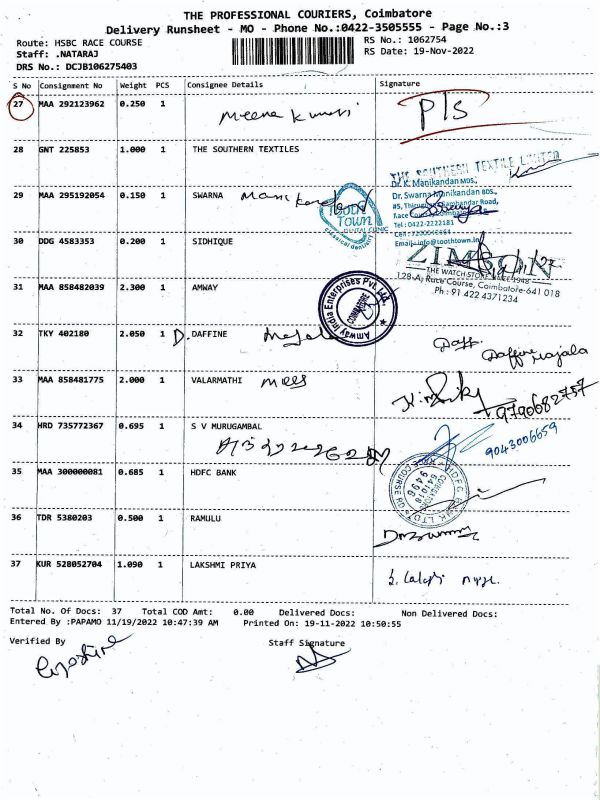 THE PROFESSIONAL COURIERS, Coimbatore
Delivery Runsheet - MO - Phone No.:0422-3505555 - Page No.:3
Route: HSBC RACE COURSE
RS No.: 1062754
Staff: .NATARAJ
RS Date: 19-Nov-2022
DRS No.: DCJB106275403
S No Consignment No Weight PCS Consignee Details Signature
27 MAA 292123962 0.250 1 Meena Kumari P/s
28 GNT 225853 1.000 1 THE SOUTHERN TEXTILES
THE SOUTHERN TEXTILE LIMITED
Dr. K. Manikandan MDS.,
29 MAA 295192054 0.150 1 SWARNA
Dr. Swarna Manikandan BDS.,
Race Course, Coimbatore
Tel: 0422-2222181
TOOTH TOWN
DENTAL CLINIC
30 DDG 4583353 0.200 1 SIDHIQUE
Email: info@toothtown.in
ZIMSON
THE WATCH STORE SINCE 1948
128-A, Race Course, Coimbatore-641 018
Ph : 91 422 4371234
31 MAA 858482039 2.300 1 AMWAY
Amway India Enterprises Pvt. Ltd.
COIMBATORE
32 TKY 402180 2.050 1 D. DAFFINE Majala
Daff.
Daffine Majala
33 MAA 858481775 2.000 1 VALARMATHI
9790682757
34 HRD 735772367 0.695 1 S V MURUGAMBAL
9043006659
35 MAA 300000081 0.685 1 HDFC BANK
36 TDR 5380203 0.500 1 RAMULU
37 KUR 528052704 1.090 1 LAKSHMI PRIYA
Total No. Of Docs: 37 Total COD Amt: 0.00 Delivered Docs: Non Delivered Docs:
Entered By :PAPAMO 11/19/2022 10:47:39 AM Printed On: 19-11-2022 10:50:55
Verified By Staff Signature